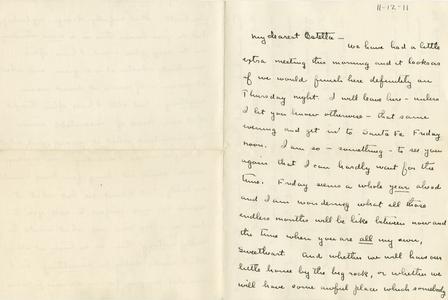 11-12-11
My dearest Estella –
We have had a little
extra meeting this morning and it looks as
if we would finish here definitely on
Thursday night. I will leave here – unless
I let you know otherwise – that same
evening and get in to Santa Fe Friday
noon. I am so – something – to see you
again that I can hardly wait for the
time. Friday seems a whole year ahead
and I am wondering what all those
endless months will be like between now and
the time when you are all my own,
Sweetheart. And whether we will have our
little house by the big rock, or whether we
will have some awful place which somebody